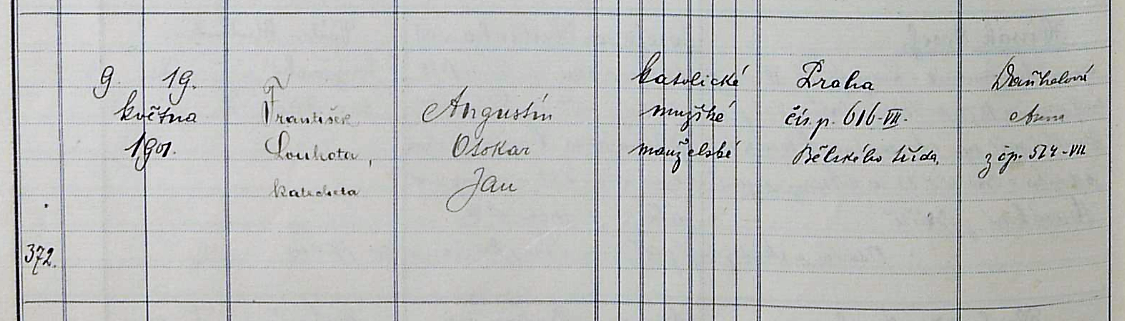 9. 19. května 1901.
František Louhota, katecheta
Augustín Otokar Jan
katolické mužské manželské
Praha
čís. p. 616-VII.
Bělského třída,
Daňhelová Anna
z čp. 524-VII
372.